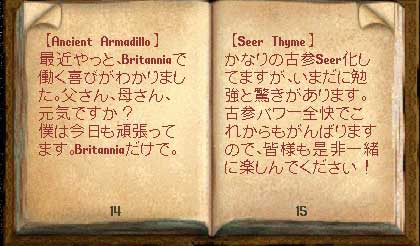 [Ancient Armadillo]
最近やっと、Britanniaで
働く喜びがわかりまし
た。父さん、母さん、
元気ですか?
僕は今日も頑張って
ます。Britanniaだけで。
14
[Seer Thyme]
かなりの古参Seer化し
てますが、いまだに勉
強と驚きがあります。
古参パワー全快でこ
れからもがんばります
ので、皆様も是非一緒
に楽しんでください!
15